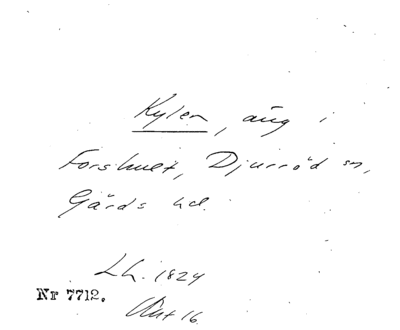 Kylen, äng i
Forshult, Djurröd sn,
Gärds hd.
Lh. 1824
Nr 7712.
Akt 16